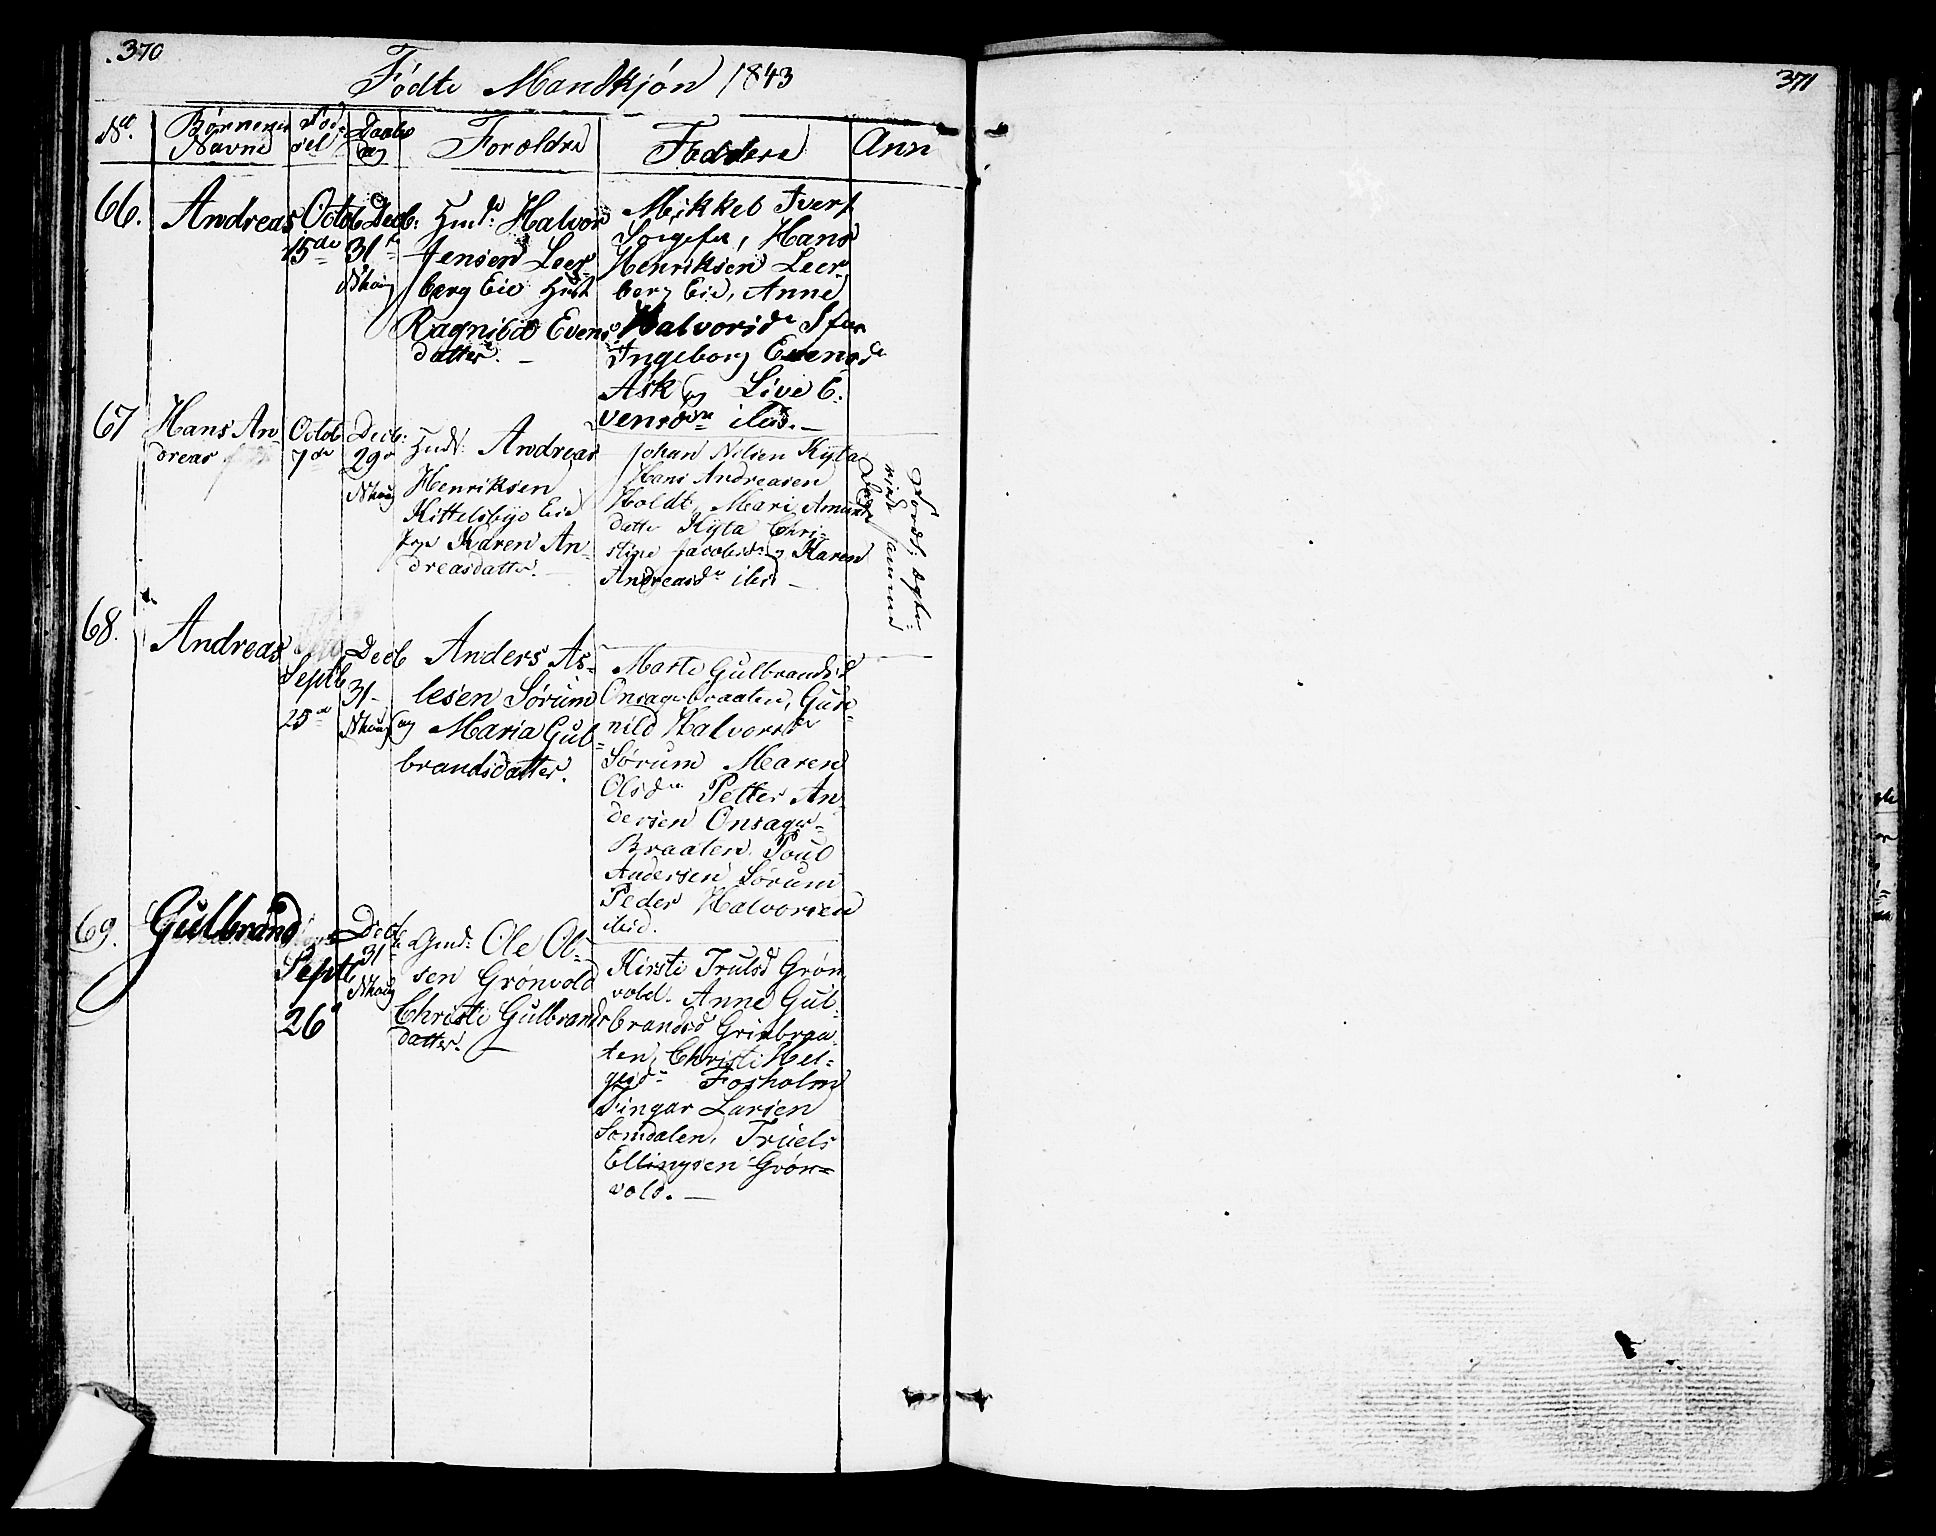 370
371
Födte Mandkjön 1843
No. Børnenes Navne Föd- sel Daabs dag Forældre Faddere Ann
66. Andreas Octob 15de Decb: 31te Nhoug
Hmd: Halvor
Jensen Leer-
berg Eie Hust
Ragnild Evens-
datter. —
Mikkel Ivers
Hans
Henriksen Leer-
berg Eie, Anne
Halvorsdr
Ingeborg Evensdr
Ask og Live E-
vensdtr ibid. —
67 Hans An-
dreas
Octob 7de Decb: 29de Nhoug
Hmd: Andreas
Henriksen
Kittelsbye Eie
Pige Karen An-
dreasdatter. —
Johan Nilsen Kyta
Hans Andreasen
Holdt, Mari Amunds
datter Kyta Chri-
stine Jacobsdr og Karen
Andreasdr ibid —
68. Andreas
Septb 25de Decb 31- Nhoug
Anders As-
lesen Sørum
og Maria Gul-
brandsdatter.
Marte Gulbrandsd
Onsagerbraaten, Gun-
nild Halvorsdr
Sørum Maren
Olsdr Petter An-
dersen Onsager-
Braaten. Poul
Andersen Sørum
Peder Halvorsen
ibid.
69. Gulbrand
Septb 26 Decb 31te Nhoug
Gmd: Ole Ol-
sen Grönvold
Christi Gulbrands
datter. —
Kirsti Trulsd Grön
vold. Anne Gul-
brandsd Grinbraa-
ten, Christi Hel-
gesdr Fosholm
Fingar Larsen
Somdalen, Truels
Ellingsen Grön=
vold. —